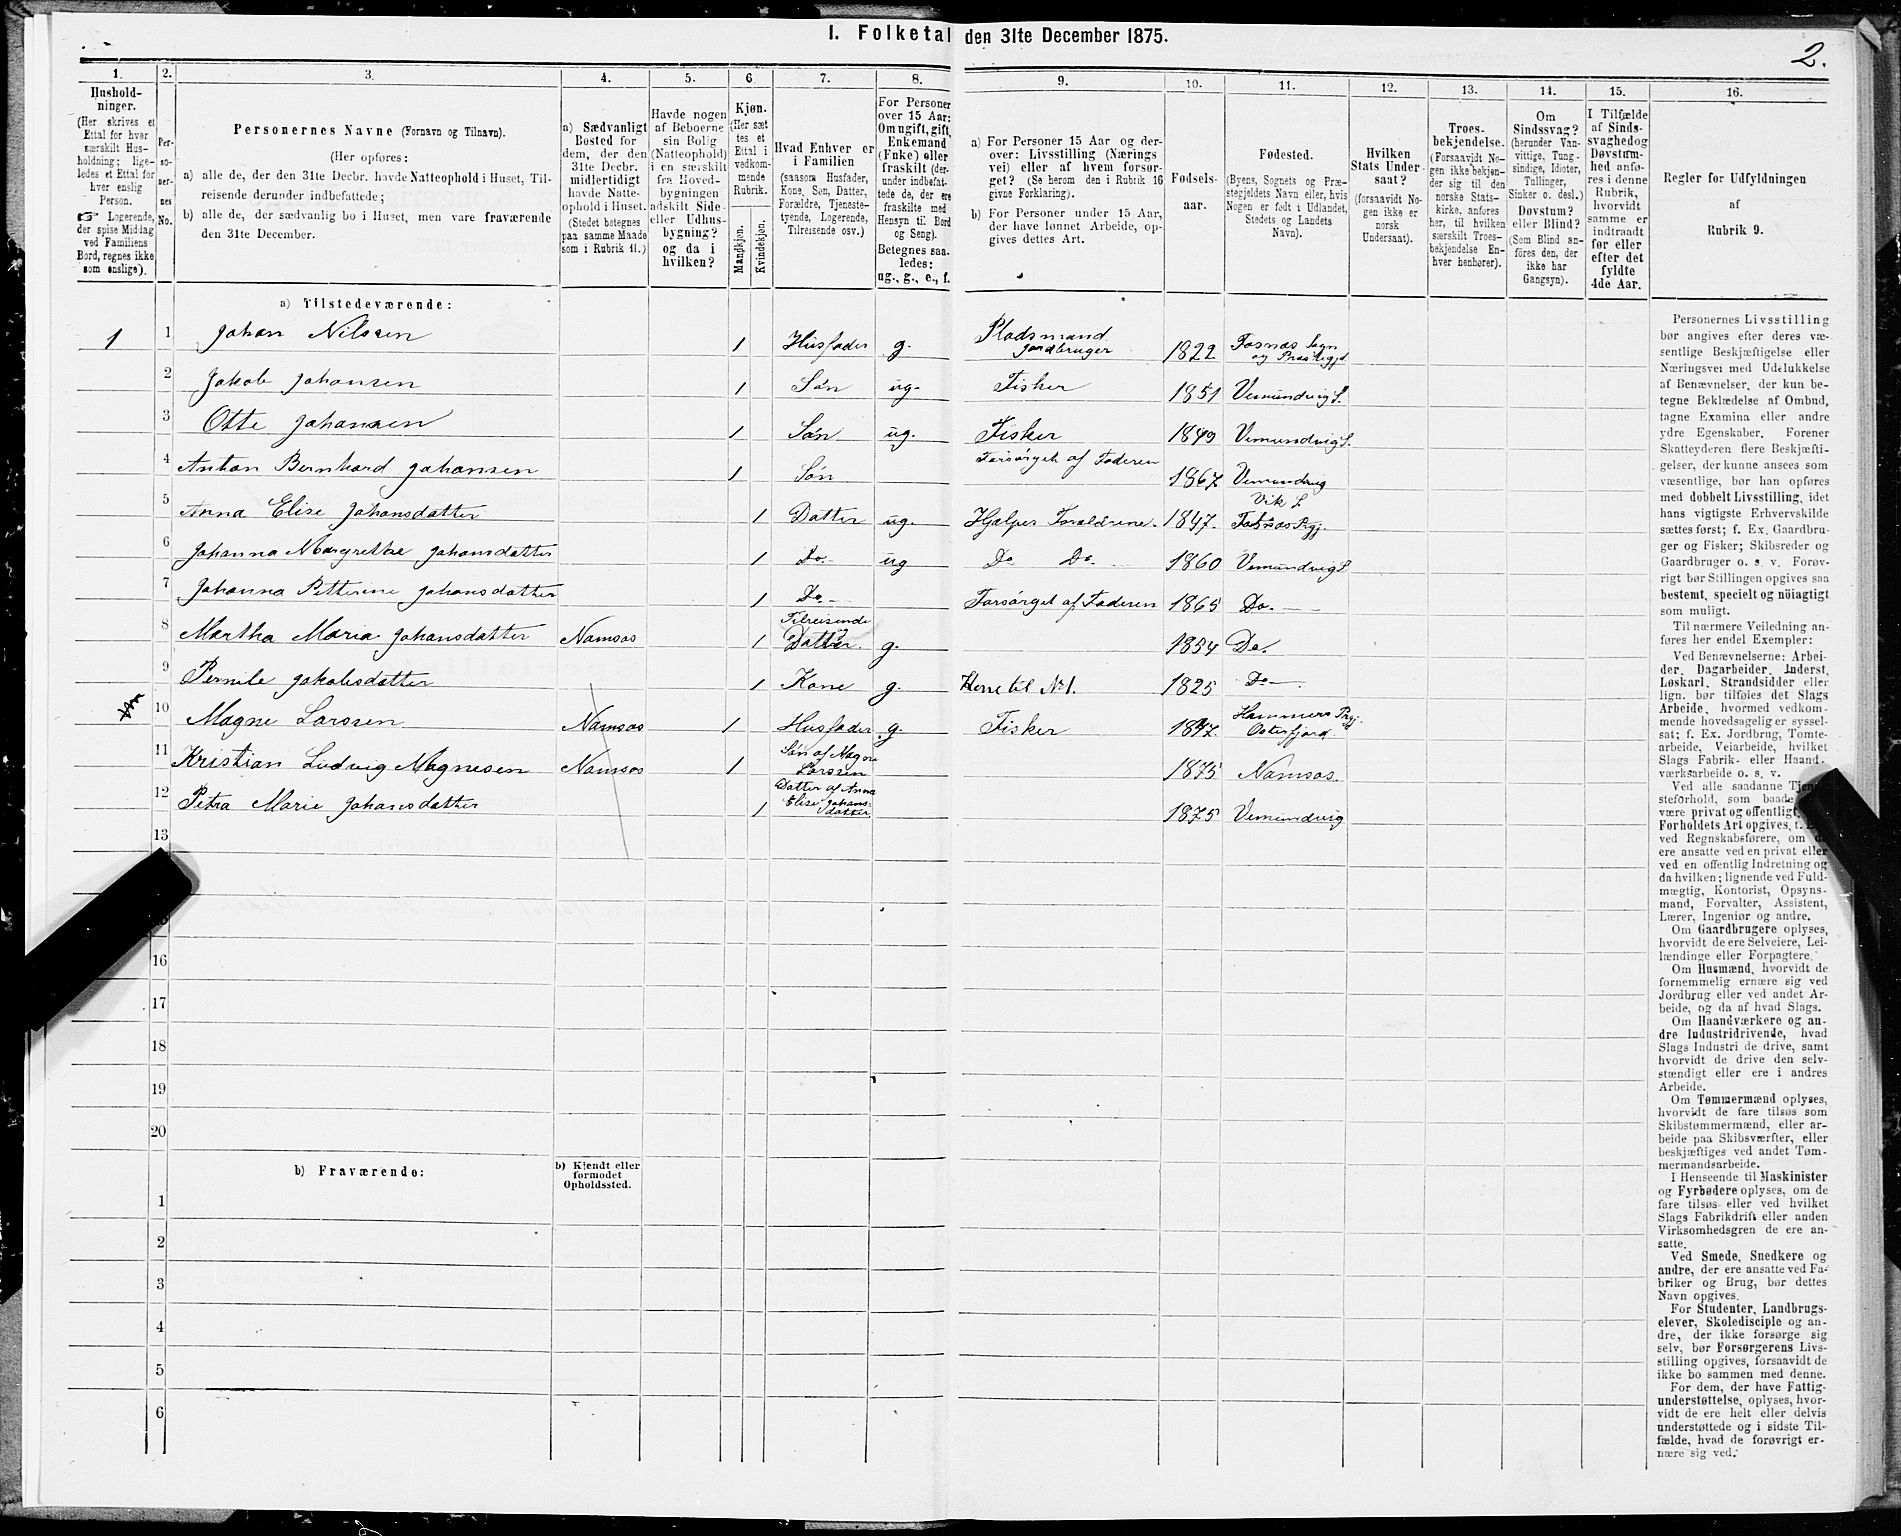 I. Folketal den 31te December 1875.
2.
1. 2. 3. 4. 5. 6 7. 8. 9. 10. 11. 12. 13. 14. 15. 16.
Hushold-
ninger.
(Her skrives et
Ettal for hver
særskilt Hus-
holdning; lige-
ledes et Ettal for
hver enslig
Person.
☞ Logerende,
der spise Middag
ved Familiens
Bord, regnes ikke
som enslige).
Per-
so-
ner-
nes
No.
Personernes Navne (Fornavn og Tilnavn).
(Her opføres:
a) alle de, der den 31te Decbr. havde Natteophold i Huset, Til-
reisende derunder indbefattede;
b) alle de, der sædvanlig bo i Huset, men vare fraværende
den 31te December.
a) Sædvanligt
Bosted for
dem, der den
31te Decbr.
midlertidigt
havde Natte-
ophold i Huset.
(Stedet betegnes
paa samme Maade
som i Rubrik 11.)
Havde nogen
af Beboerne
sin Bolig
(Natteophold)
i en særskilt
fra Hoved-
bygningen
adskilt Side-
eller Udhus-
bygning?
og da i
hvilken?
Kjøn.
(Her sæt
tes et
Ettal i
vedkom-
mende
Rubrik.
Mandkjøn.
Kvindekjøn.
Hvad Enhver er
i Familien
(saasom Husfader,
Kone, Søn, Datter,
Forældre, Tjeneste-
tyende, Logerende,
Tilreisende osv.)
For Personer
over 15 Aar:
Om ugift, gift,
Enkemand
(Enke) eller
fraskilt (der-
under indbefat-
tede de, der ere
fraskilte med
Hensyn til Bord
og Seng).
Betegnes saa-
ledes:
ug., g., e., f.
a) For Personer 15 Aar og der-
over: Livsstilling (Nærings
vei) eller af hvem forsør-
get? (Se herom den i Rubrik 16
givne Forklaring).
b) For Personer under 15 Aar,
der have lønnet Arbeide, op-
gives dettes Art.
Fødsels-
aar.
Fødested.
(Byens, Sognets og Præ-
stegjeldets Navn eller, hvis
Nogen er født i Udlandet,
Stedets og Landets
Navn).
Hvilken
Stats Under-
saat?
(forsaavidt No-
gen ikke er
norsk
Undersaat).
Troes-
bekjendelse.
(Forsaavidt No-
gen ikke bekjen-
der sig til den
norske Stats-
kirke, anføres
her, til hvilken
særskilt Troes-
bekjendelse En-
hver henhører).
Om
Sindssvag?
(herunder Van-
vittige, Tung-
sindige, Idioter,
Tullinger,
Sinker o. desl.)
Døvstum?
eller Blind?
(Som Blind an-
føres den, der
ikke har
Gangsyn).
I Tilfælde
af Sinds-
svaghed og
Døvstum-
hed anfø-
res i denne
Rubrik,
hvorvidt
samme er
indtraadt
før eller
efter det
fyldte
4de Aar.
Regler for Udfyldningen
af
Rubrik 9.
a) Tilstedeværende:
1 1 Johan Nilssen 1 Husfader g. Pladsmand jordbruger 1822 Fosnæs Sogn og Præstegjd
2 Jakob Johansen 1 Søn ug. Fisker 1851 Vemundvig S.
3 Otte Johansen 1 Søn ug. Fisker 1849 Vemundvig S.
4 Anton Bernhard Johansen 1 Søn Forsørget af Faderen 1867 Vemundvig
5 Anna Elise Johansdatter 1 Datter ug. Hjælper Forældrene. 1847. Vik S. Fosnæs Prgj.
6 Johanna Margrethe Johansdatter 1 Do. ug Do Do. 1860 Vemundvig S.
7 Johanna Petterine Johansdatter 1 Do. Forsørget af Faderen 1865 Do.
8 Martha Maria Johansdatter Namsos 1 Tilreisende Datter. g. 1854 Do.
9 Pernile Jakobsdatter 1 Kone g. Kone til No 1. 1825 Do
10 Magne Larssen Namsos 1 Husfader g. Fisker 1847. Hammers Prgj. Osterfjord
11 Kristian Ludvig Magnesen Namsos 1 Søn af Magne Larssen 1875 Namsos
12 Petra Marie Johansdatter 1 Datter af Anna Elise Johans-datter 1875 Vemundvig
13
16
17
18
19
20
b) Fraværende:
b) Kjendt eller
formodet
Opholdssted.
1
2
3
4
5
6
Personernes Livsstilling
bør angives efter deres væ-
sentlige Beskjæftigelse eller
Næringsvei med Udelukkelse
af Benævnelser, der kun be-
tegne Beklædelse af Ombud,
tagne Examina eller andre
ydre Egenskaber. Forener
Skatteyderen flere Beskjæfti-
gelser, der kunne ansees som
væsentlige, bør han opføres
med dobbelt Livsstilling, idet
hans vigtigste Erhvervskilde
sættes først; f. Ex. Gaardbru-
ger og Fisker; Skibsreder og
Gaardbruger o. s. v. Forøv-
rigt bør Stillingen opgives saa
bestemt, specielt og nöiagtigt
som muligt.
Til nærmere Veiledning an-
føres her endel Exempler:
Ved Benævnelserne: Arbei-
der, Dagarbeider, Inderst,
Løskarl, Strandsidder eller
lign. bør tilføies det Slags
Arbeide, hvormed vedkom-
mende hovedsagelig er syssel-
sat; f. Ex. Jordbrug, Tomte-
arbeide, Veiarbeide, hvilket
Slags Fabrik- eller Haand-
værksarbeide o. s. v.
Ved alle saadanne Tjene-
steforhold, som baade
være privat og offentligt,
Forholdets Art opgives, t. Ex.
ved Regnskabsførere, om de
ere ansatte ved en privat eller
ved en offentlig Indretning og
da hvilken; lignende ved Fuld-
mægtig, Kontorist, Opsyns-
mand, Forvalter, Assistent,
Lærer, Ingeniør og andre.
Om Gaardbrugere oplyses,
hvorvidt de ere Selveiere, Lei-
lændinge eller Forpagtere.
Om Husmænd, hvorvidt de
fornemmelig ernære sig ved
Jordbrug eller ved andet Ar-
beide, og da af hvad Slags.
Om Haandværkere og an-
dre Industridrivende, hvad
Slags Industri de drive, samt
hvorvidt de drive den selv-
stændigt eller ere i andres
Arbeide.
Om Tømmermænd oplyses,
hvorvidt de fare tilsøs som
Skibstømmermænd, eller ar-
beide paa Skibsværfter, eller
beskjæftiges ved andet Tøm-
mermandsarbeide.
I Henseende til Maskinister
og Fyrbødere oplyses, om de
fare tilsøs eller ved hvilket
Slags Fabrikdrift eller anden
Virksomhedsgren de ere an-
satte.
Ved Smede, Snedkere og
andre, der ere ansatte ved Fa-
briker og Brug, bør dettes
Navn opgives.
For Studenter, Landbrugs-
elever, Skoledisciple og an-
dre, der ikke forsørge sig
selv, bør Forsørgerens Livs-
stilling opgives, forsaavidt de
ikke bo sammen med denne.
For dem, der have Fattig-
understøttelse, oplyses, hvor-
vidt de ere helt eller delvis
understøttede og i sidste Til-
fælde, hvad de forøvrigt er-
nære sig ved.